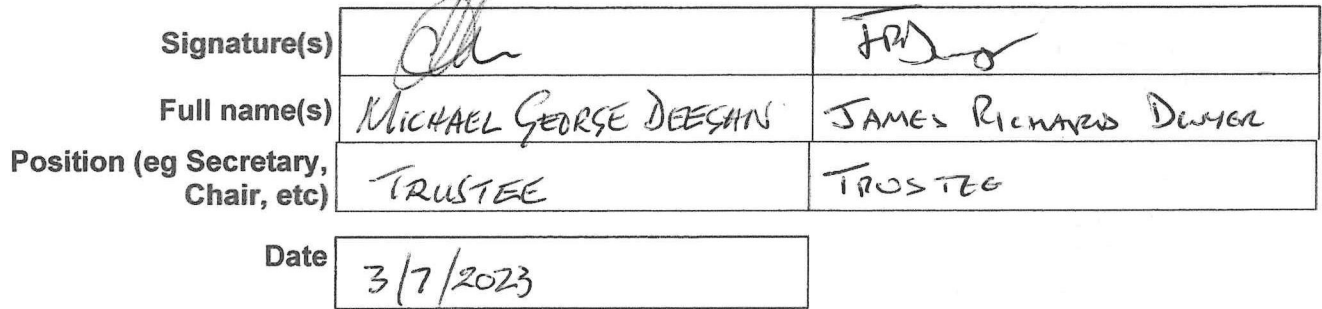 Signature(s)
Full name(s) MICHAEL GEORGE DEEGAN JAMES RICHARD DWYER
Position (eg Secretary, Chair, etc) TRUSTEE TRUSTEE
Date 3/7/2023